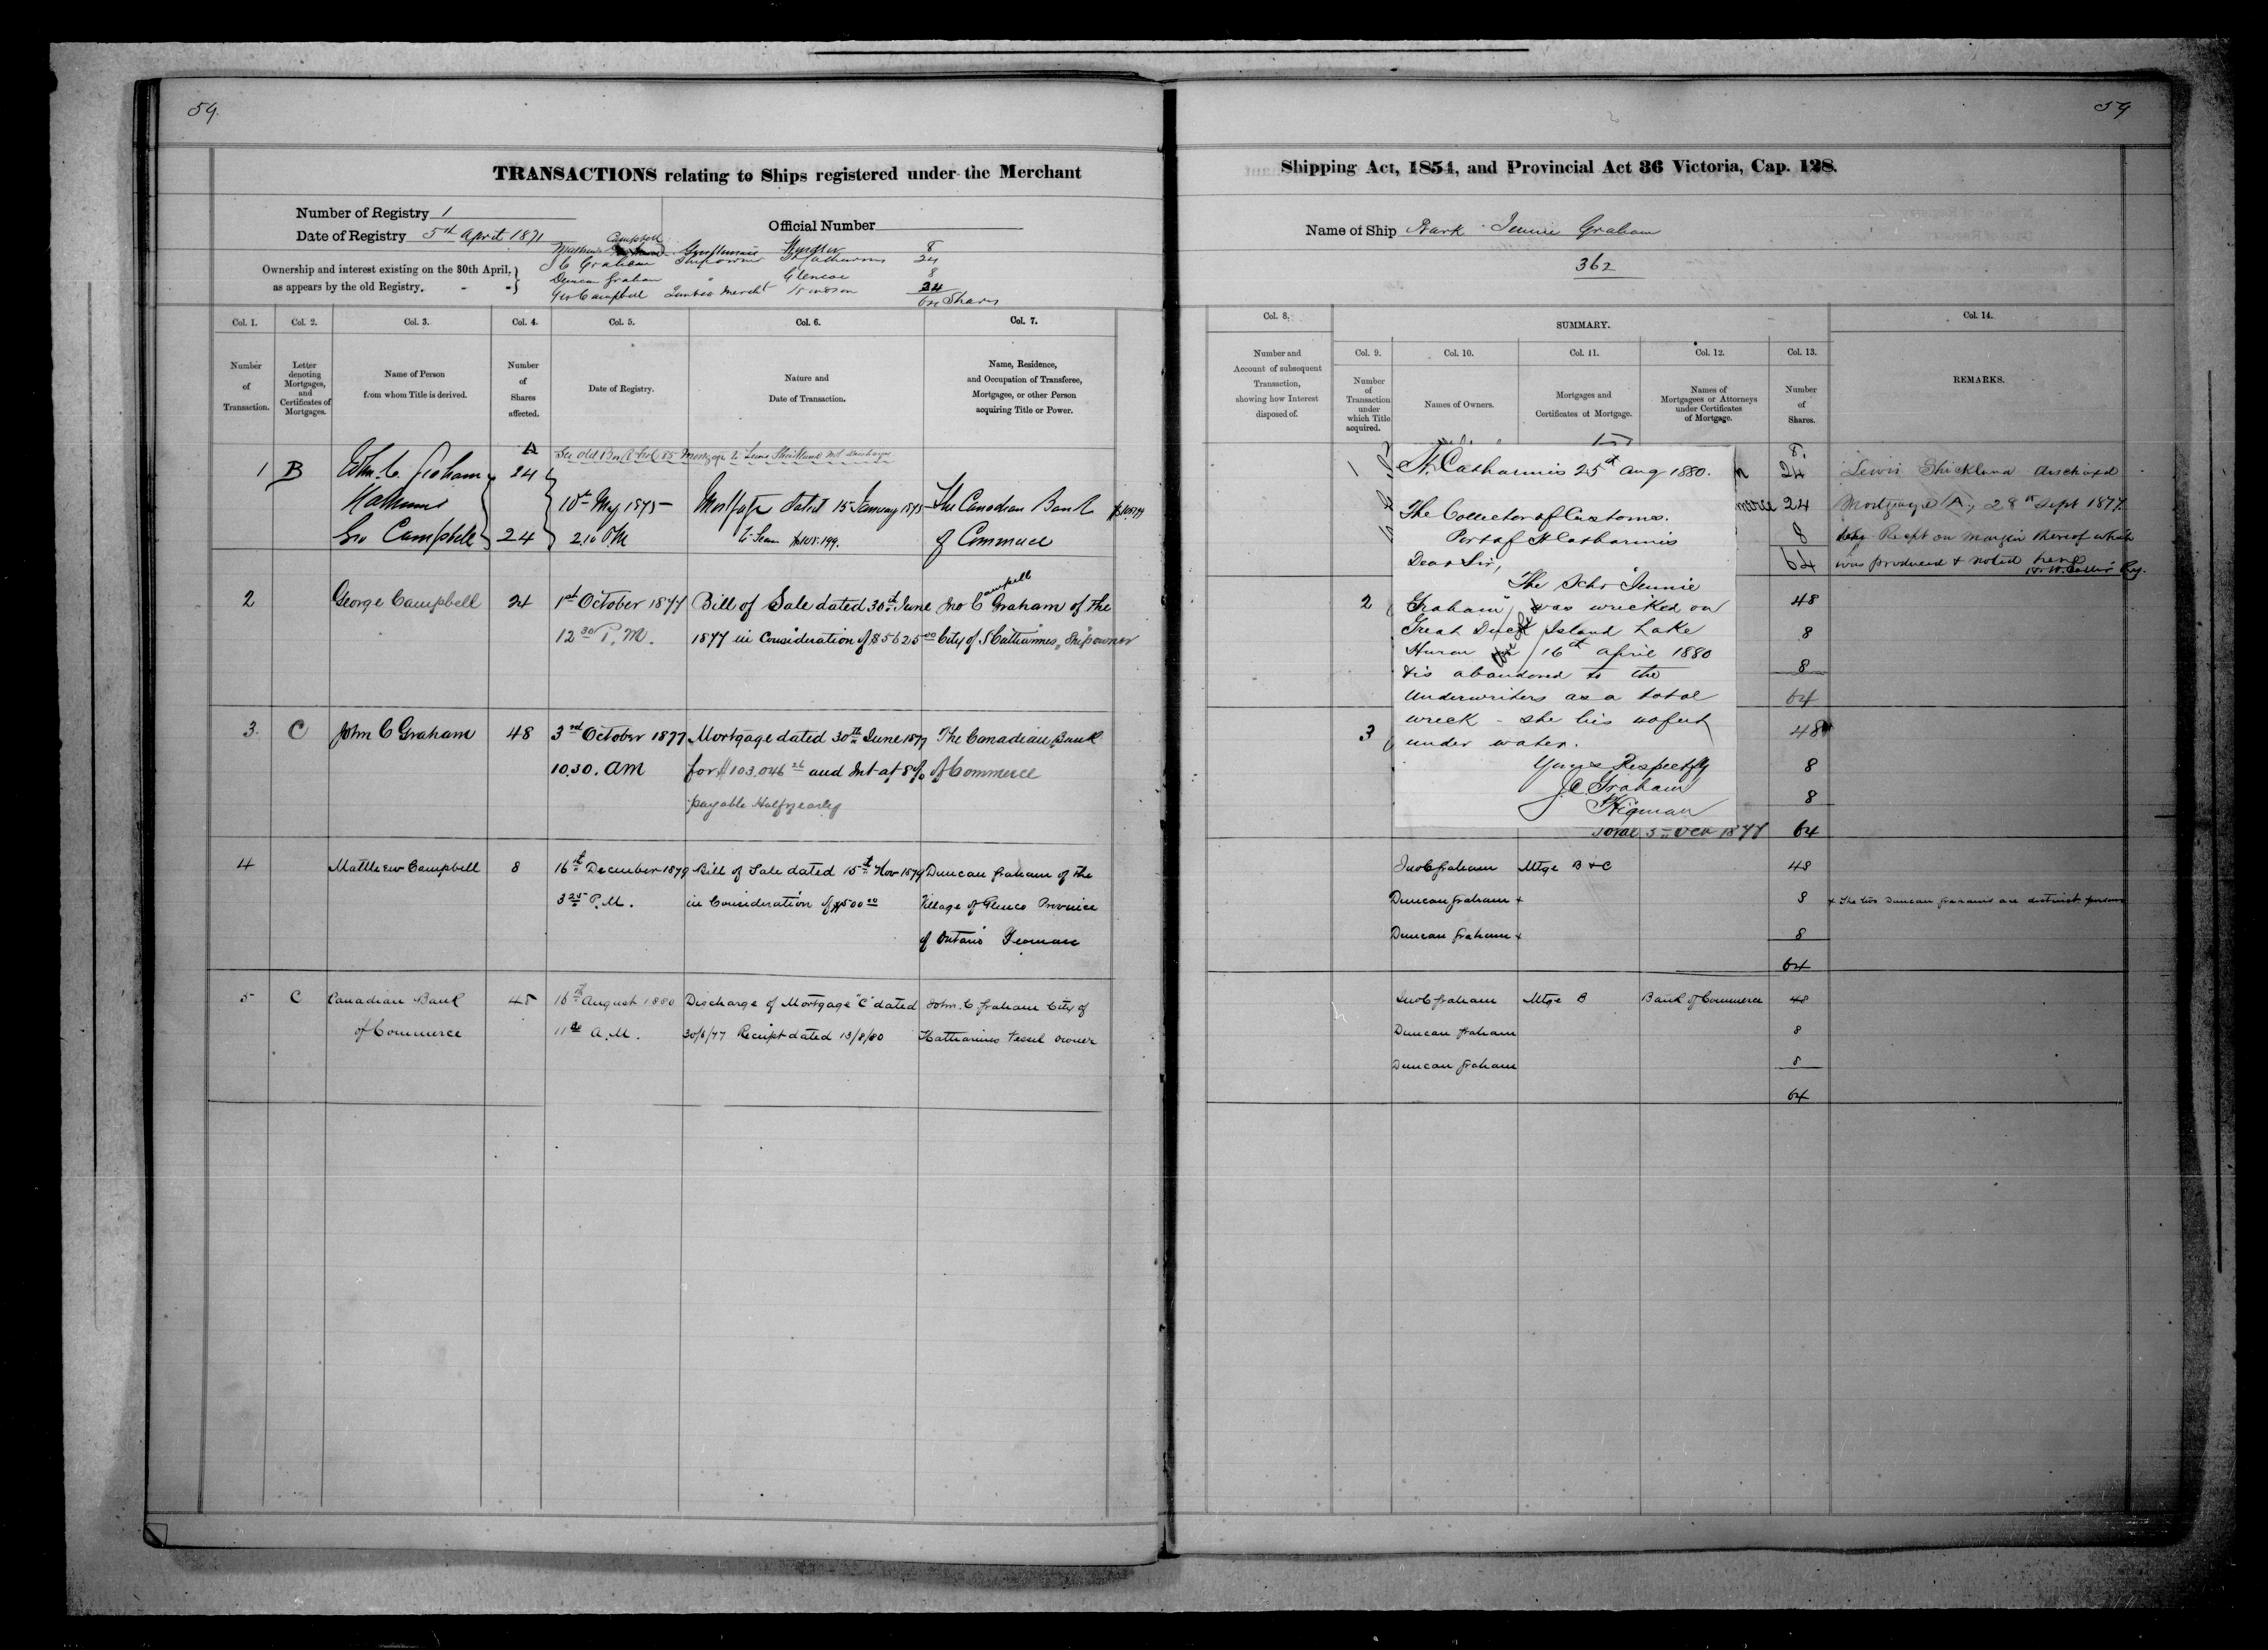 59.
59
TRANSACTIONS relating to Ships registered under the Merchant
Shipping Act, 1854, and Provincial Act 36 Victoria, Cap. 128.
Number of Registry 1
Date of Registry 5th April 1871
Official Number
Name of Ship Bark Jennie Graham
362
Ownership and interest existing on the 30th April,
as appears by the old Registry.
Campbell
Mathew Gentleman Windsor 8
J C Graham Shipowner St Catharines 24
Duncan Graham " Glencoe 8
Geo Campbell Lumber Mercht Windsor 24
64 Shares
Col. 1.
Col. 2.
Col. 3.
Col. 4.
Col. 5.
Col. 6.
Col. 7.
Number of Transaction.
Letter denoting Mortgages, and Certificates of Mortgages.
Name of Person from whom Title is derived.
Number of Shares affected.
Date of Registry.
Nature and Date of Transaction.
Name, Residence, and Occupation of Transferee, Mortgagee, or other Person acquiring Title or Power.
A See old Bk A Fol 85 Mortgage to Lewis Shickluna not discharged
1 B John C. Graham 24
St Catharines
Geo Campbell 24
10th May 1875
2.10 P.M
Mortgage dated 15 January 1875
The Canadian Bank
of Commerce
2 George Campbell 24 1st October 1877 Bill of Sale dated 30th June Jno Campbell Graham of the
12 30 P.M. 1877 in Consideration of $5625 00 City of St Catharines, Shipowner
3. C John C Graham 48 3rd October 1877 Mortgage dated 30th June 1877 The Canadian Bank
10.30. AM for $103.046 26 and Int at 8% of Commerce
payable Halfyearly
4 Matthew Campbell 8 16th December 1879 Bill of Sale dated 15th Nov 1879 Duncan Graham of the
3 25 P.M. in Consideration of $500 00 Village of Glenco Province
of Ontario Yeoman
5 C Canadian Bank 48 16th August 1880 Discharge of Mortgage "C" dated John. C Graham City of
of Commerce 11 00 A.M. 30/6/77 Receipt dated 13/8/80 St Catharines Vessel owner
Col. 8.
SUMMARY.
Col. 14.
Number and Account of subsequent Transaction, showing how Interest disposed of.
Col. 9.
Col. 10.
Col. 11.
Col. 12.
Col. 13.
Number of Transaction under which Title acquired.
Names of Owners.
Mortgages and Certificates of Mortgage.
Names of Mortgagees or Attorneys under Certificates of Mortgage.
Number of Shares.
REMARKS.
St. Catharines 25th Aug 1880.
The Collector of Customs.
Port of St Catharines
Dear Sir,
The Schr "Jennie
Graham" was wrecked on
Great Duck Island Lake
Huron 16th april 1880
& is abandoned to the
Underwriters as a total
wreck - she lies 40 feet
under water.
Yours Respectfly
J.C. Graham
1
8
24
24
8
64
Lewis Shickluna discharged
Mortgage (A) 28th Sept 1877
Recpt on margin thereof which
was produced & noted here
2
48
8
8
64
3
48
8
8
Total 3rd Oct 1877 64
Jno C Graham Mtge B & C 48
Duncan Graham + 8 + The two Duncan Grahams are distinct persons
Duncan Graham + 8
64
Jno C Graham Mtge B Bank of Commerce 48
Duncan Graham 8
Duncan Graham 8
64